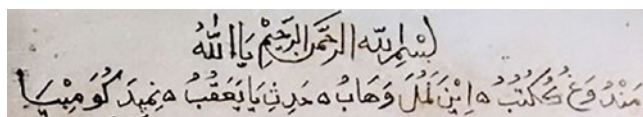 بِسْمِ اللهِ الرَّحْمٰنِ الرَّحِيْمِ يَا اَللّٰهُ
مَنْدُ وَغُ كُكُتُبُ ه اِيْنَ لَمُلَ وَهَابُ ه حَدِثِ يَا يَعَقُبُ ه نِمِيدَ كُوَمْبِيَا